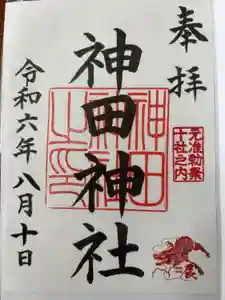 奉拝
元准勅祭
十社之内
神田神社
神田神社之印
令和六年八月十日
辰